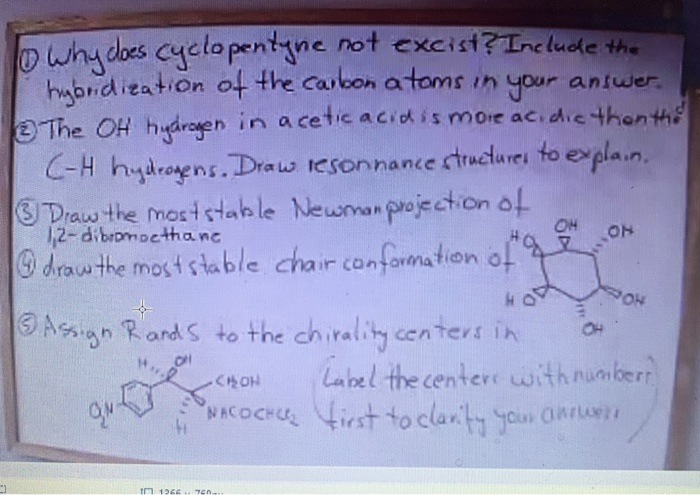 ① Why does cyclopentyne not excist? Include the
hybridization of the carbon atoms in your answer.
② The OH hydrogen in acetic acid is more acidic than the
C-H hydrogens. Draw resonnance structures to explain.
③ Draw the most stable Newman projection of
1,2-dibromoethane
④ draw the most stable chair conformation of
HO OH OH
HO OH
OH
⑤ Assign R and S to the chirality centers in
H OH
CH2OH
O2N NHCOCHCl2
H
(Label the centers with numbers
first to clarify your answers)